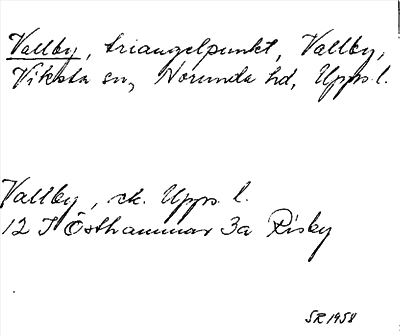 Vallby, triangelpunkt, Vallby,
Viksta sn, Norunda hd, Upps. l.
Vallby, ek. Upps. l.
12 I Östhammar 3a Risby
SR 1958